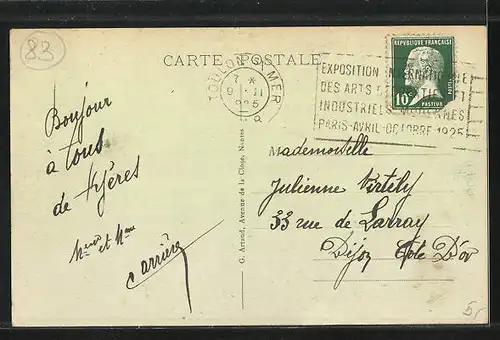 83
CARTE POSTALE
TOULON-S-MER
7 *
9-11
925
EXPOSITION INTERNATIONALE
DES ARTS DÉCORATIFS ET
INDUSTRIELS MODERNES
PARIS-AVRIL-OCTOBRE 1925
RÉPUBLIQUE FRANÇAISE
POSTES
10c
PASTEUR
Bonjour
à tous
de Hyères
et Mme
Carrière
G. Artaud, Avenue de la Close, Nantes
Mademoiselle
Julienne
33 rue de Larray
Dijon Cote D'or